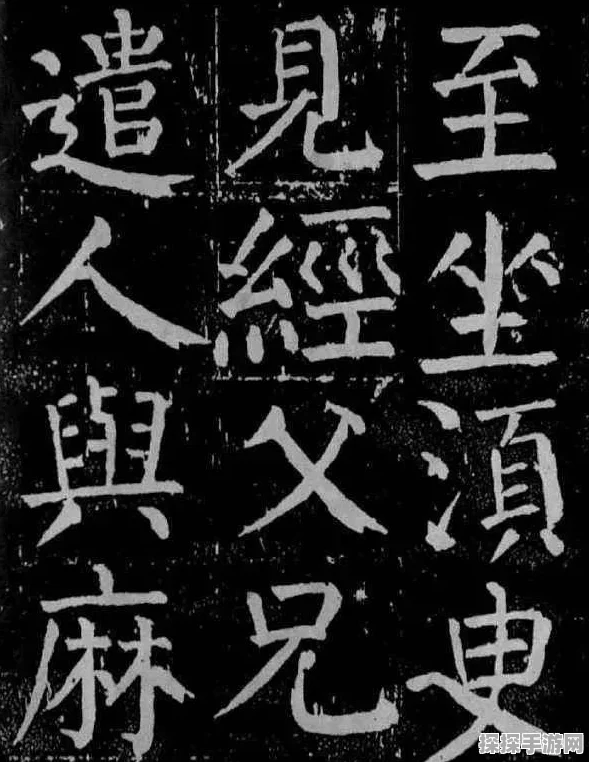 至坐湏叟
見經父兄
遣人與麻
探探手游网